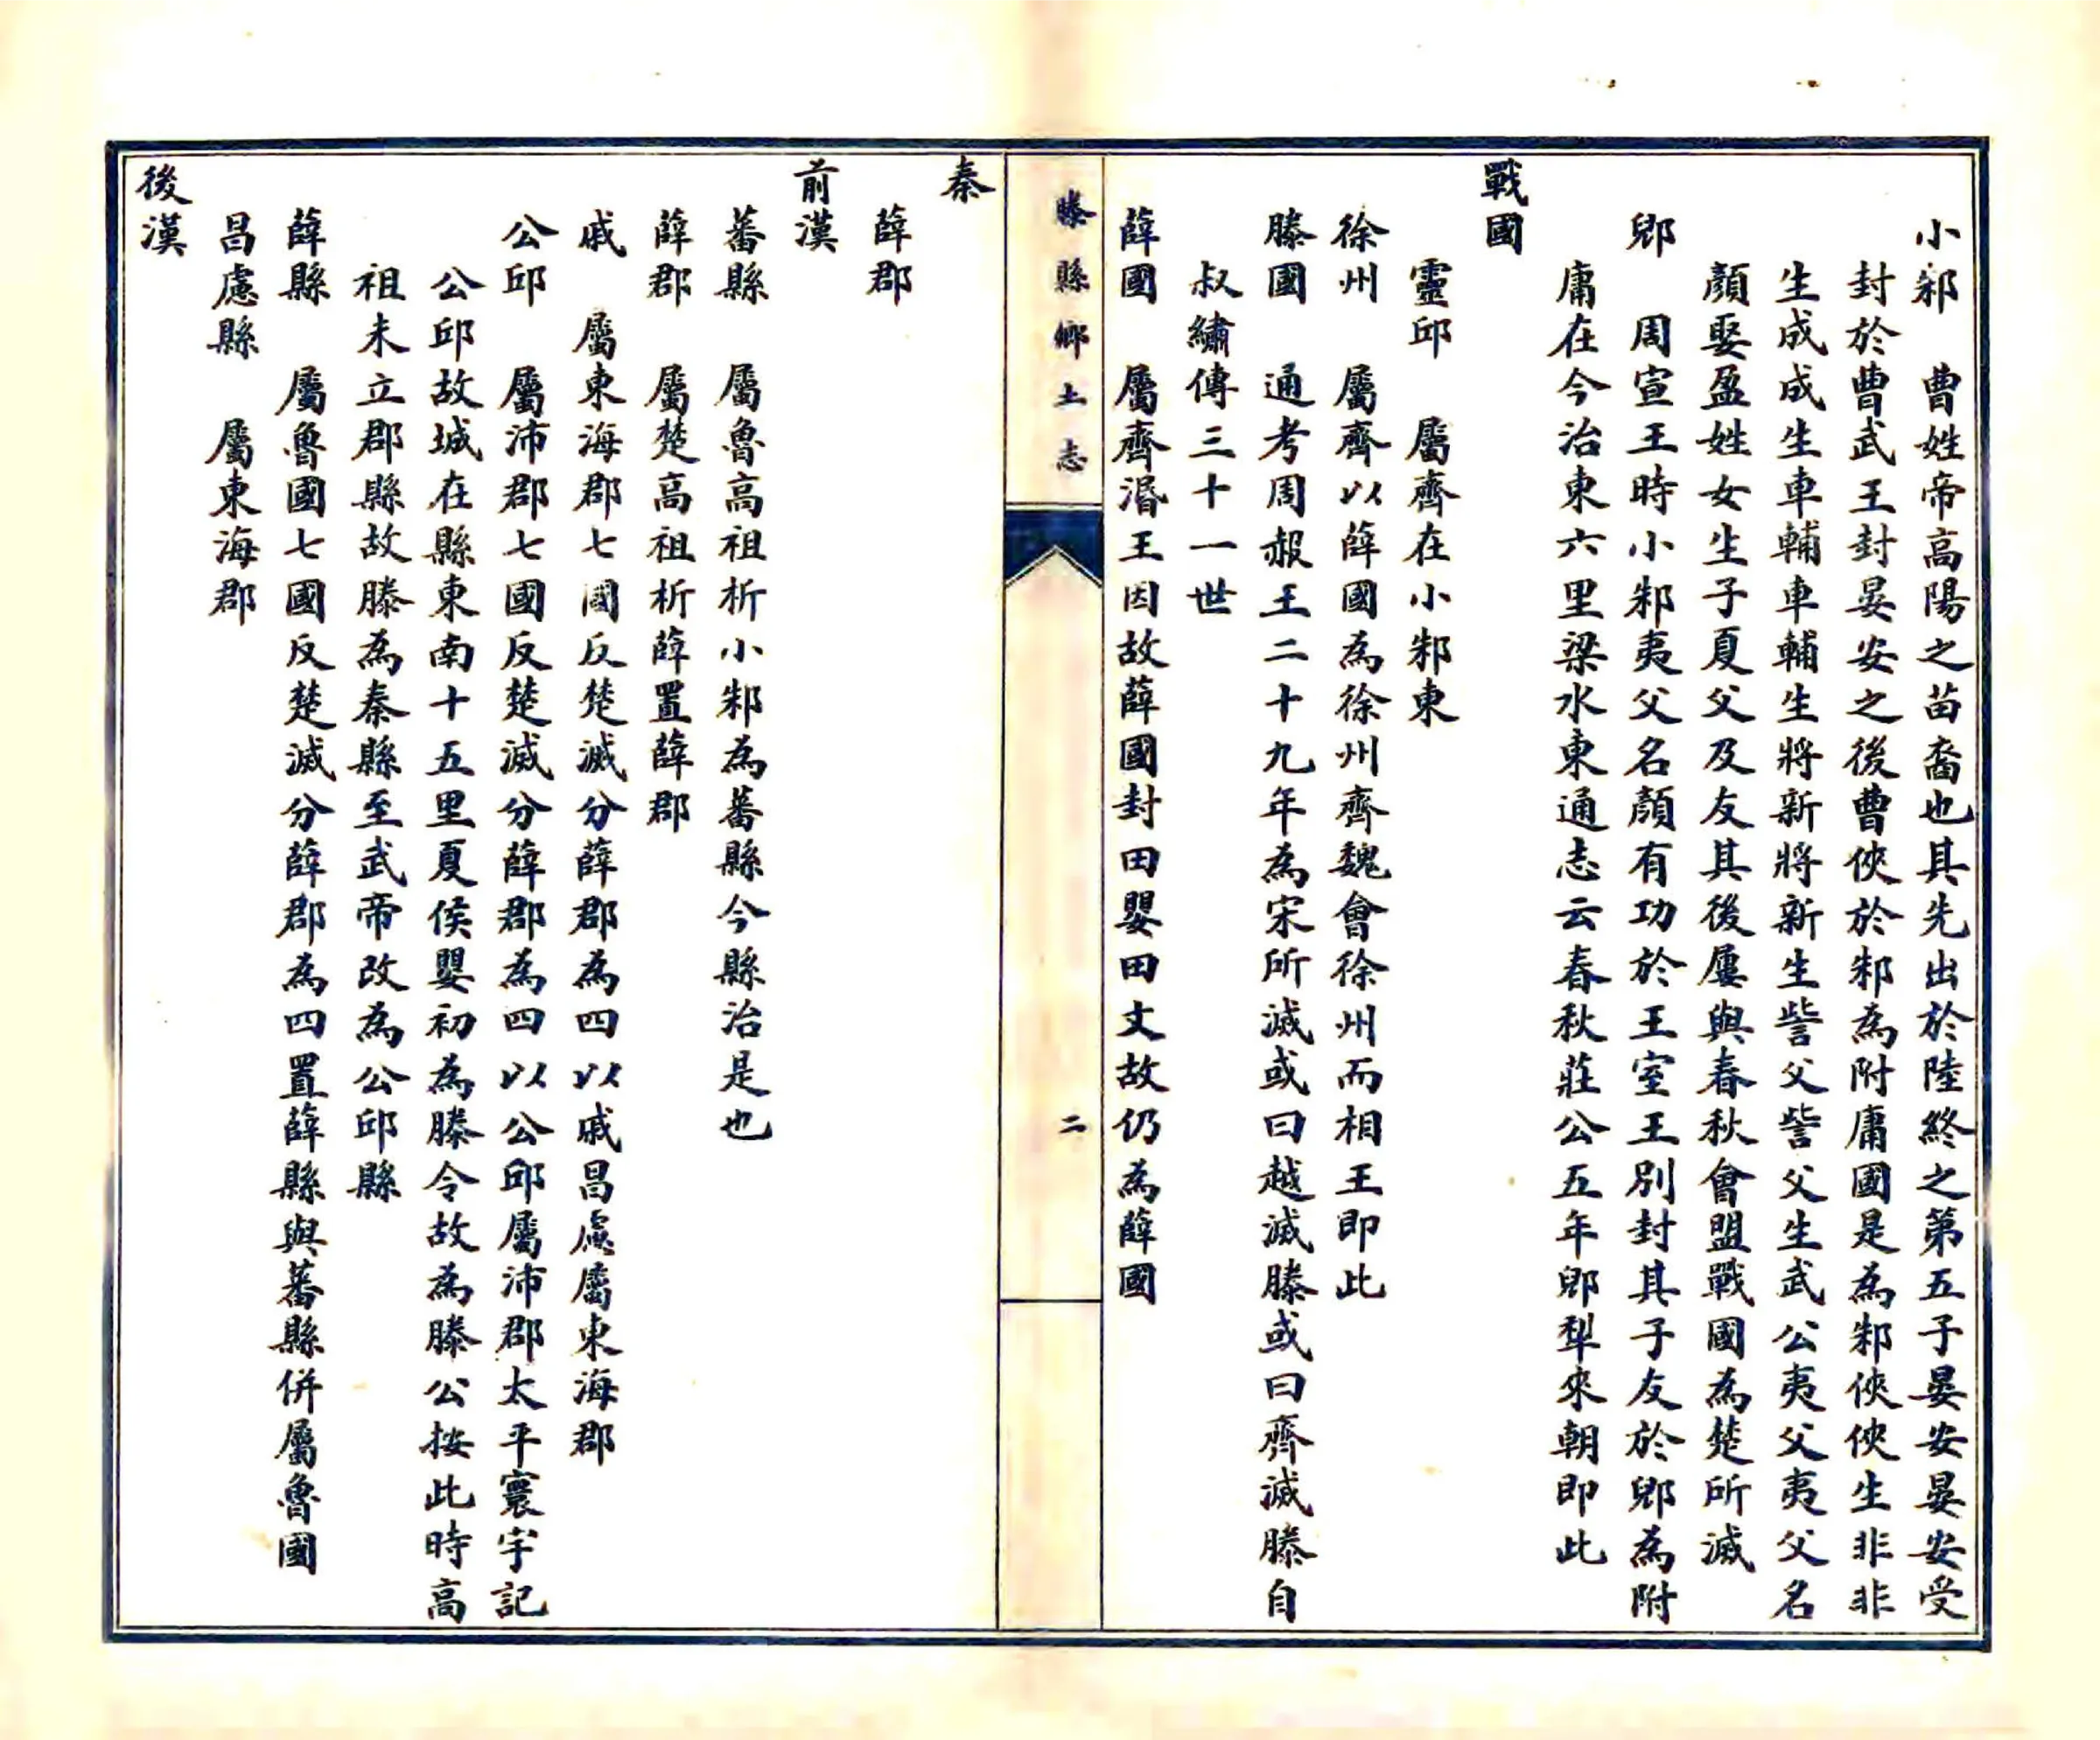 小邾　曹姓帝高陽之苗裔也其先出於陸終之第五子晏安晏安受
封於曹武王封晏安之後曹俠於邾為附庸國是為邾俠俠生非非
生成成生車輔車輔生將新將新生訾父訾父生武公夷父夷父名
顏娶盈姓女生子夏父及友其後屢與春秋會盟戰國為楚所滅
郳　周宣王時小邾夷父名顏有功於王室王別封其子友於郳為附
庸在今治東六里梁水東通志云春秋莊公五年郳犁來朝即此
戰國
靈邱　屬齊在小邾東
徐州　屬齊以薛國為徐州齊魏會徐州而相王即此
滕國　通考周赧王二十九年為宋所滅或曰越滅滕或曰齊滅滕自
叔繡傳三十一世
薛國　屬齊湣王因故薛國封田嬰田文故仍為薛國
滕縣鄉土志
二
秦
薛郡
前漢
蕃縣　屬魯高祖析小邾為蕃縣今縣治是也
薛郡　屬楚高祖析薛置薛郡
戚　屬東海郡七國反楚滅分薛郡為四以戚昌慮屬東海郡
公邱　屬沛郡七國反楚滅分薛郡為四以公邱屬沛郡太平寰宇記
公邱故城在縣東南十五里夏侯嬰初為滕令故為滕公按此時高
祖未立郡縣故滕為秦縣至武帝改為公邱縣
薛縣　屬魯國七國反楚滅分薛郡為四置薛縣與蕃縣併屬魯國
昌慮縣　屬東海郡
後漢